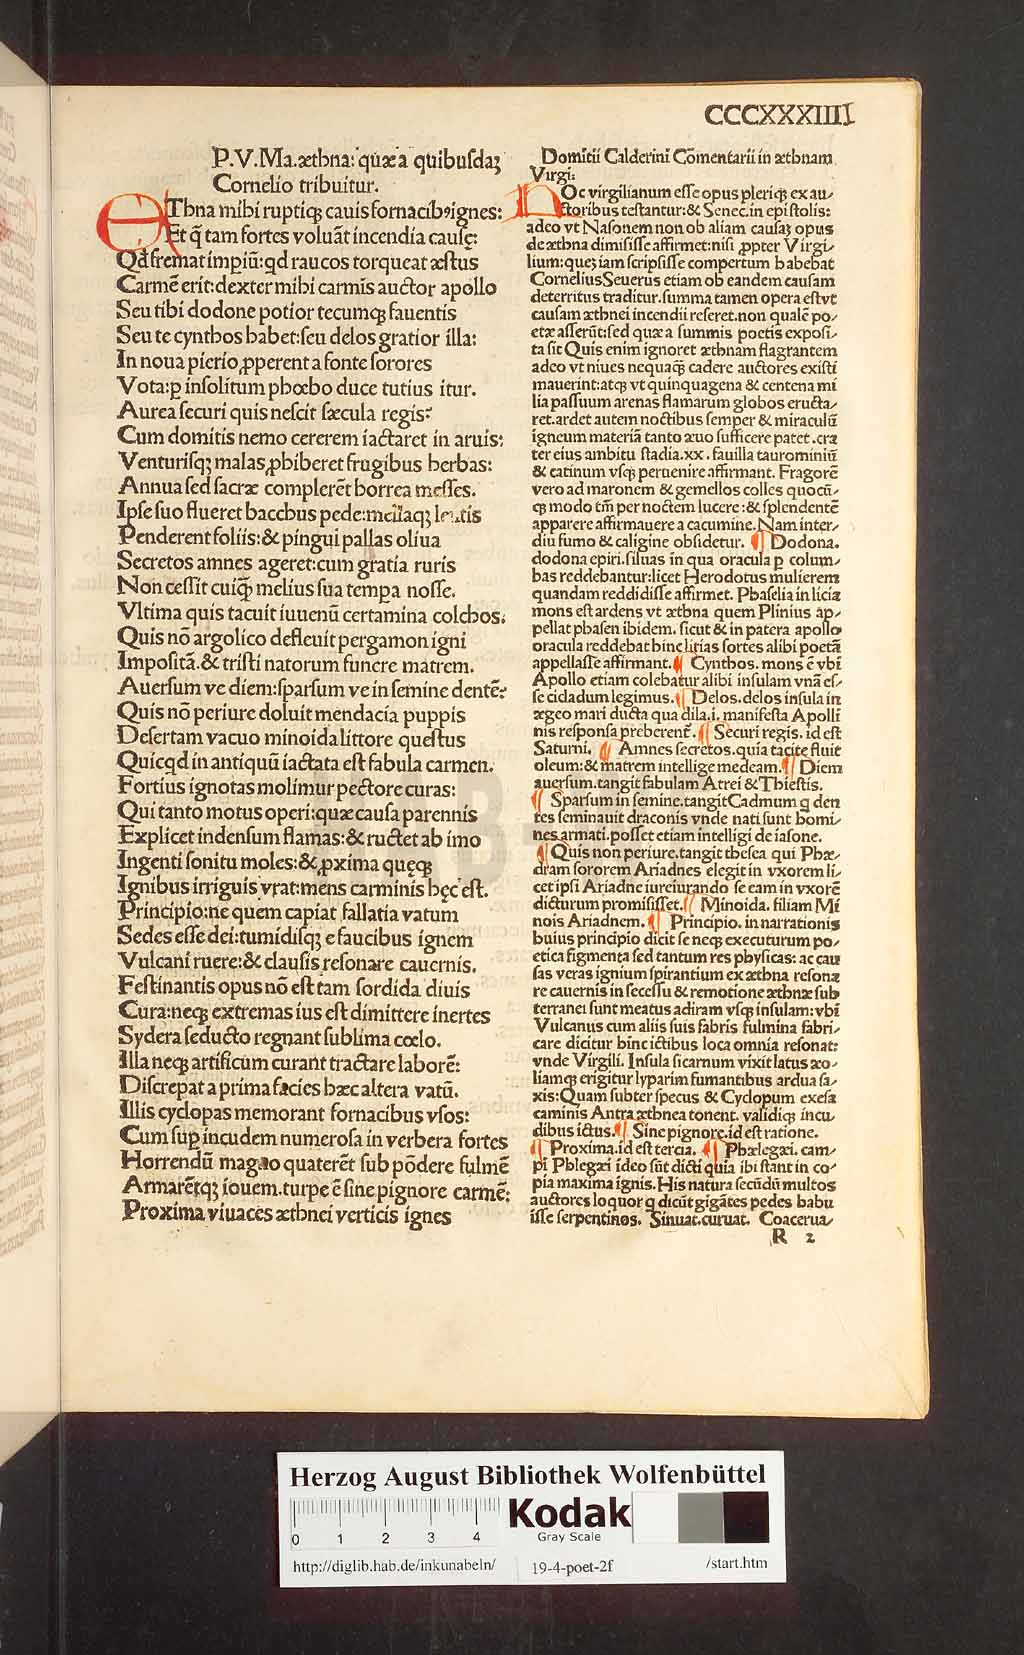 CCCXXXIIII
P.V.Ma.æthna: quæ a quibuſdaʒ
Cornelio tribuitur.
ETbna mihi ruptiqꝫ cauis fornacibꝰ ignes:
Et q̃ tam fortes voluãt incendia cauſę:
Qd̃ fremat impiũ: qd raucos torqueat æſtus
Carmẽ erit: dexter mihi carmĩs auctor apollo
Seu tibi dodone potior tecumqꝫ fauentis
Seu te cynthos habet: ſeu delos gratior illa:
In noua pierio ꝓperent a fonte ſorores
Vota: ꝑ inſolitum phœbo duce tutius itur.
Aurea ſecuri quis neſcit ſæcula regis?
Cum domitis nemo cererem iactaret in aruis:
Venturiſqꝫ malas ꝓhiberet frugibus herbas:
Annua ſed ſacræ complerẽt horrea meſſes.
Ipſe ſuo flueret bacchus pede: mellaqꝫ lentis
Penderent foliis: & pingui pallas oliua
Secretos amnes ageret: cum gratia ruris
Non ceſſit cuiq̃ melius ſua tempa noſſe.
Vltima quis tacuit iuuenũ certamina colchos:
Quis nõ argolico defleuit pergamon igni
Impoſitã. & triſti natorum funere matrem.
Auerſum ve diem: ſparſum ve in ſemine dentẽ?
Quis nõ periure doluit mendacia puppis
Deſertam vacuo minoida littore queſtus
Quicqd in antiquũ iactata eſt fabula carmen.
Fortius ignotas molimur pectore curas:
Qui tanto motus operi: quæ cauſa parennis
Explicet indenſum flamas: & ructet ab imo
Ingenti ſonitu moles: & ꝓxima quęqꝫ
Ignibus irriguis vrat: mens carminis hęc eſt.
Principio: ne quem capiat fallatia vatum
Sedes eſſe dei: tumidiſqꝫ e faucibus ignem
Vulcani ruere: & clauſis reſonare cauernis.
Feſtinantis opus nõ eſt tam ſordida diuis
Cura: neqꝫ extremas ius eſt dimittere inertes
Sydera ſeducto regnant ſublima cœlo.
Illa neqꝫ artificum curant tractare laborẽ:
Diſcrepat a prima facies hæc altera vatũ.
Illis cyclopas memorant fornacibus vſos:
Cum ſuꝑ incudem numeroſa in verbera fortes
Horrendũ magno quaterẽt ſub põdere fulmẽ
Armarẽtqꝫ iouem. turpe ẽ ſine pignore carmẽ:
Proxima viuaces æthnei verticis ignes
Domitii Calderini Cõmentarii in æthnam
Virgi:
HOc virgilianum eſſe opus pleriqꝫ ex au⸗
ctoribus teſtantur: & Senec. in epiſtolis:
adeo vt Naſonem non ob aliam cauſaꝫ opus
de æthna dimiſiſſe affirmet: niſi ꝓpter Virgi⸗
lium: queꝫ iam ſcripſiſſe compertum habebat
Cornelius Seuerus etiam ob eandem cauſam
deterritus traditur. ſumma tamen opera eſt vt
cauſam æthnei incendii referet. non qualẽ po⸗
etæ aſſerũt: ſed quæ a ſummis poetis expoſi⸗
ta ſit Quis enim ignoret æthnam flagrantem
adeo vt niues nequaq̃ cadere auctores exiſti
mauerint: atqꝫ vt quinquagena & centena mi
lia paſſuum arenas flamarum globos eructa⸗
ret. ardet autem noctibus ſemper & miraculũ
igneum materiã tanto æuo ſufficere patet. cra
ter eius ambitu ſtadia. xx. fauilla taurominiũ
& catinum vſqꝫ peruenire affirmant. Fragorẽ
vero ad maronem & gemellos colles quocũ⸗
qꝫ modo tm̃ per noctem lucere: & ſplendentẽ
apparere affirmauere a cacumine. Nam inter⸗
diu fumo & caligine obſidetur. ¶ Dodona.
dodona epiri. ſiluas in qua oracula ꝑ colum⸗
bas reddebantur: licet Herodotus mulierem
quandam reddidiſſe affirmet. Phaſelia in licia
mons eſt ardens vt æthna quem Plinius ap⸗
pellat phaſen ibidem. ſicut & in patera apollo
oracula reddebat hinc litias ſortes alibi poetã
appellaſſe affirmant. ¶ Cynthos. mons ẽ vbi
Apollo etiam colebatur alibi inſulam vnã eſ⸗
ſe cidadum legimus. ¶ Delos. delos inſula in
ægeo mari ducta qua dila. i. manifeſta Apolli
nis reſponſa preberent. ¶ Securi regis. id eſt
Saturni. ¶ Amnes ſecretos. quia tacite fluit
oleum: & matrem intellige medeam. ¶ Diem
auerſum. tangit fabulam Atrei & Thieſtis.
¶ Sparſum in ſemine. tangit Cadmum q den
tes ſeminauit draconis vnde nati ſunt homi⸗
nes armati. poſſet etiam intelligi de iaſone.
¶ Quis non periure. tangit theſea qui Phæ⸗
dram ſororem Ariadnes elegit in vxorem li⸗
cet ipſi Ariadne iureiurando ſe eam in vxorẽ
dicturum promiſiſſet. ¶ Minoida. filiam Mi
nois Ariadnem. ¶ Principio. in narrationis
huius principio dicit ſe neqꝫ executurum po⸗
etica figmenta ſed tantum res phyſicas: ac cau
ſas veras ignium ſpirantium ex æthna reſona
re cauernis in ſeceſſu & remotione æthnæ ſub
terranei ſunt meatus adiram vſqꝫ inſulam: vbi
Vulcanus cum aliis ſuis fabris fulmina fabri⸗
care dicitur hinc ictibus loca omnia reſonat:
vnde Virgili. Inſula ſicarnum vixit latus æo⸗
liamqꝫ erigitur lyparim fumantibus ardua ſa⸗
xis: Quam ſubter ſpecus & Cyclopum exeſa
caminis Antra æthnea tonent. validiqꝫ incu
dibus ictus. ¶ Sine pignore. id eſt ratione.
¶ Proxima. id eſt tercia. ¶ Phælegræi. cam⸗
pi Phlegræi ideo ſũt dicti quia ibi ſtant in co⸗
pia maxima ignis. His natura ſecũdũ multos
auctores loquor q dicũt gigãtes pedes habu
iſſe ſerpentinos. Sinuat. curuat. Coacerua⸗
R 2
Herzog August Bibliothek Wolfenbüttel
0 1 2 3 4
Kodak
Gray Scale
http://diglib.hab.de/inkunabeln/
19-4-poet-2f
/start.htm